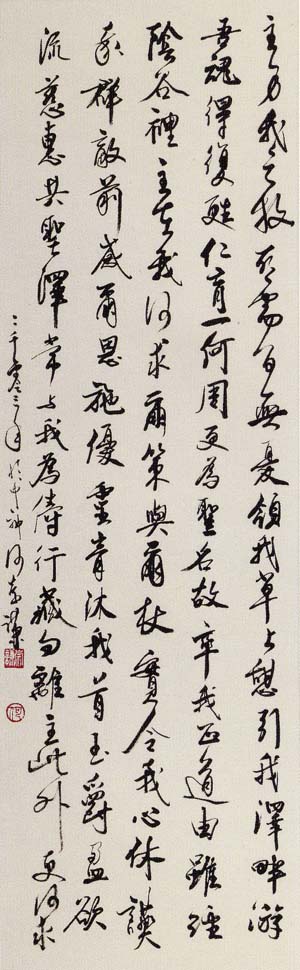 主乃我之牧所需百無憂領我草上憩引我澤畔游
吾魂得復甦仁育一何周更為聖名故率我正道由雖經
陰谷裡主在我何求爾策與爾杖實令我心休讌
我群敵前感爾恩施優靈膏沐我首玉爵盈欲
流慈惠共聖澤常與我為儔行藏勿離主此外更何求
二千零二年於中神何